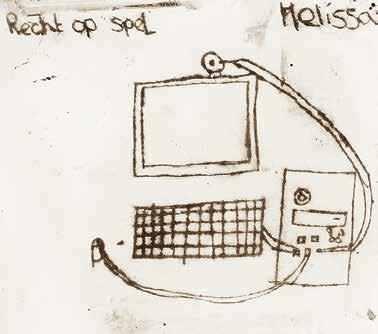 Recht op spel
Melissa